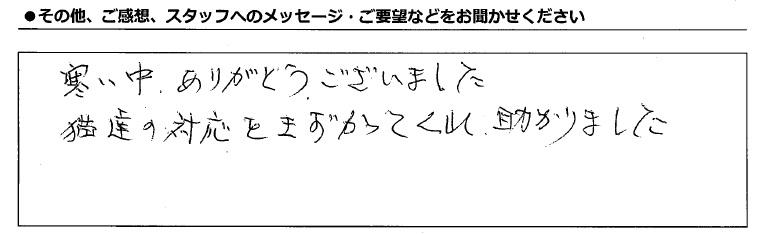 ●その他、ご感想、スタッフへのメッセージ・ご要望などをお聞かせください
寒い中、ありがとうございました
猫達の対応をまずかってくれ、助かりました